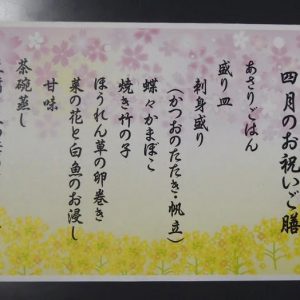 四月のお祝いご膳
あさりごはん
盛り皿
刺身盛り
(かつおのたたき・帆立)
蝶々かまぼこ
焼き竹の子
ほうれん草の卵巻き
菜の花と白魚のお浸し
甘味
茶碗蒸し